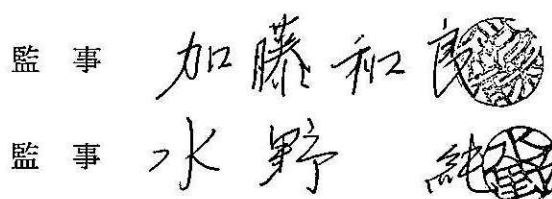 監事 加藤和良
監事 水野 純